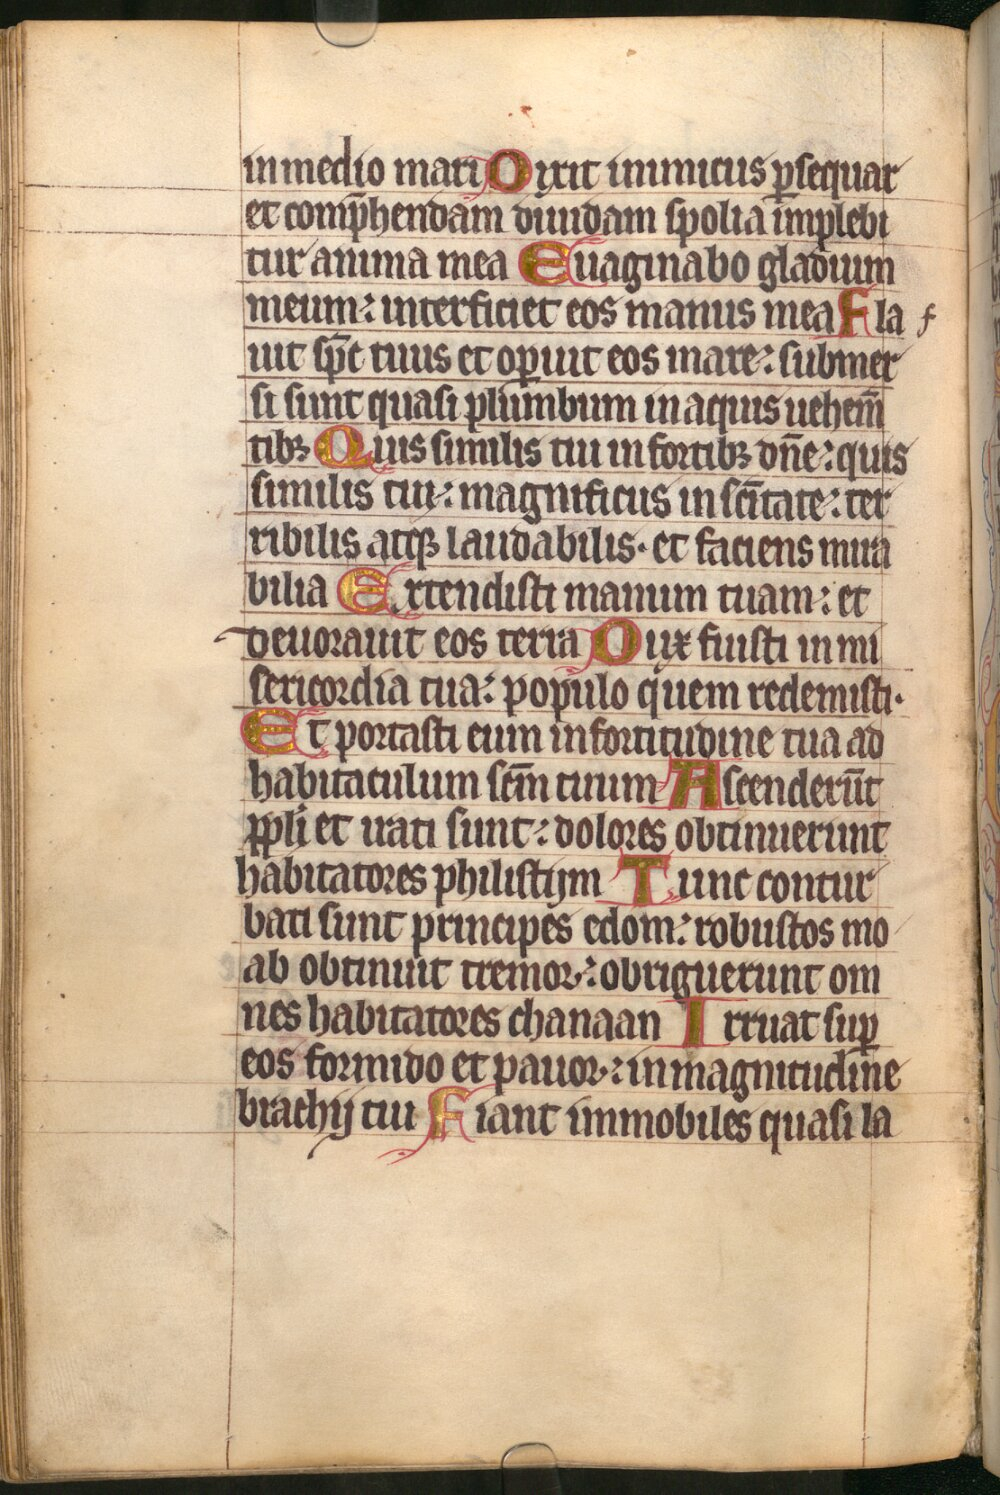 in medio mari Dixit inimicus ꝑsequar
et comp̄hendam diuidam spolia implebi
tur anima mea Euaginabo gladium
meum: interficiet eos manus mea Fla f
uit sp̄c tuus et oꝑuit eos mare: submer
si sunt quasi plumbum in aquis uehem̄
tibꝫ Quis similis tui in fortibꝫ dn̄e: quis
similis tui: magnificus in sc̄itate: ter
ribilis atqꝫ laudabilis· et faciens mira
bilia Extendisti manum tuam: et
deuorauit eos terra Dux fuisti in mi
sericordia tua: populo quem redemisti·
Et portasti eum in fortitudine tua ad
habitaculum sc̄m tuum Ascenderūt
ppl̄i et irati sunt: dolores obtinuerunt
habitatores philistijm Tunc contur
bati sunt principes edom: robustos mo
ab obtinuit tremor: obriguerunt om
nes habitatores chanaan Irruat suꝑ
eos formido et pauor: in magnitudine
brachij tui Fiant immobiles quasi la